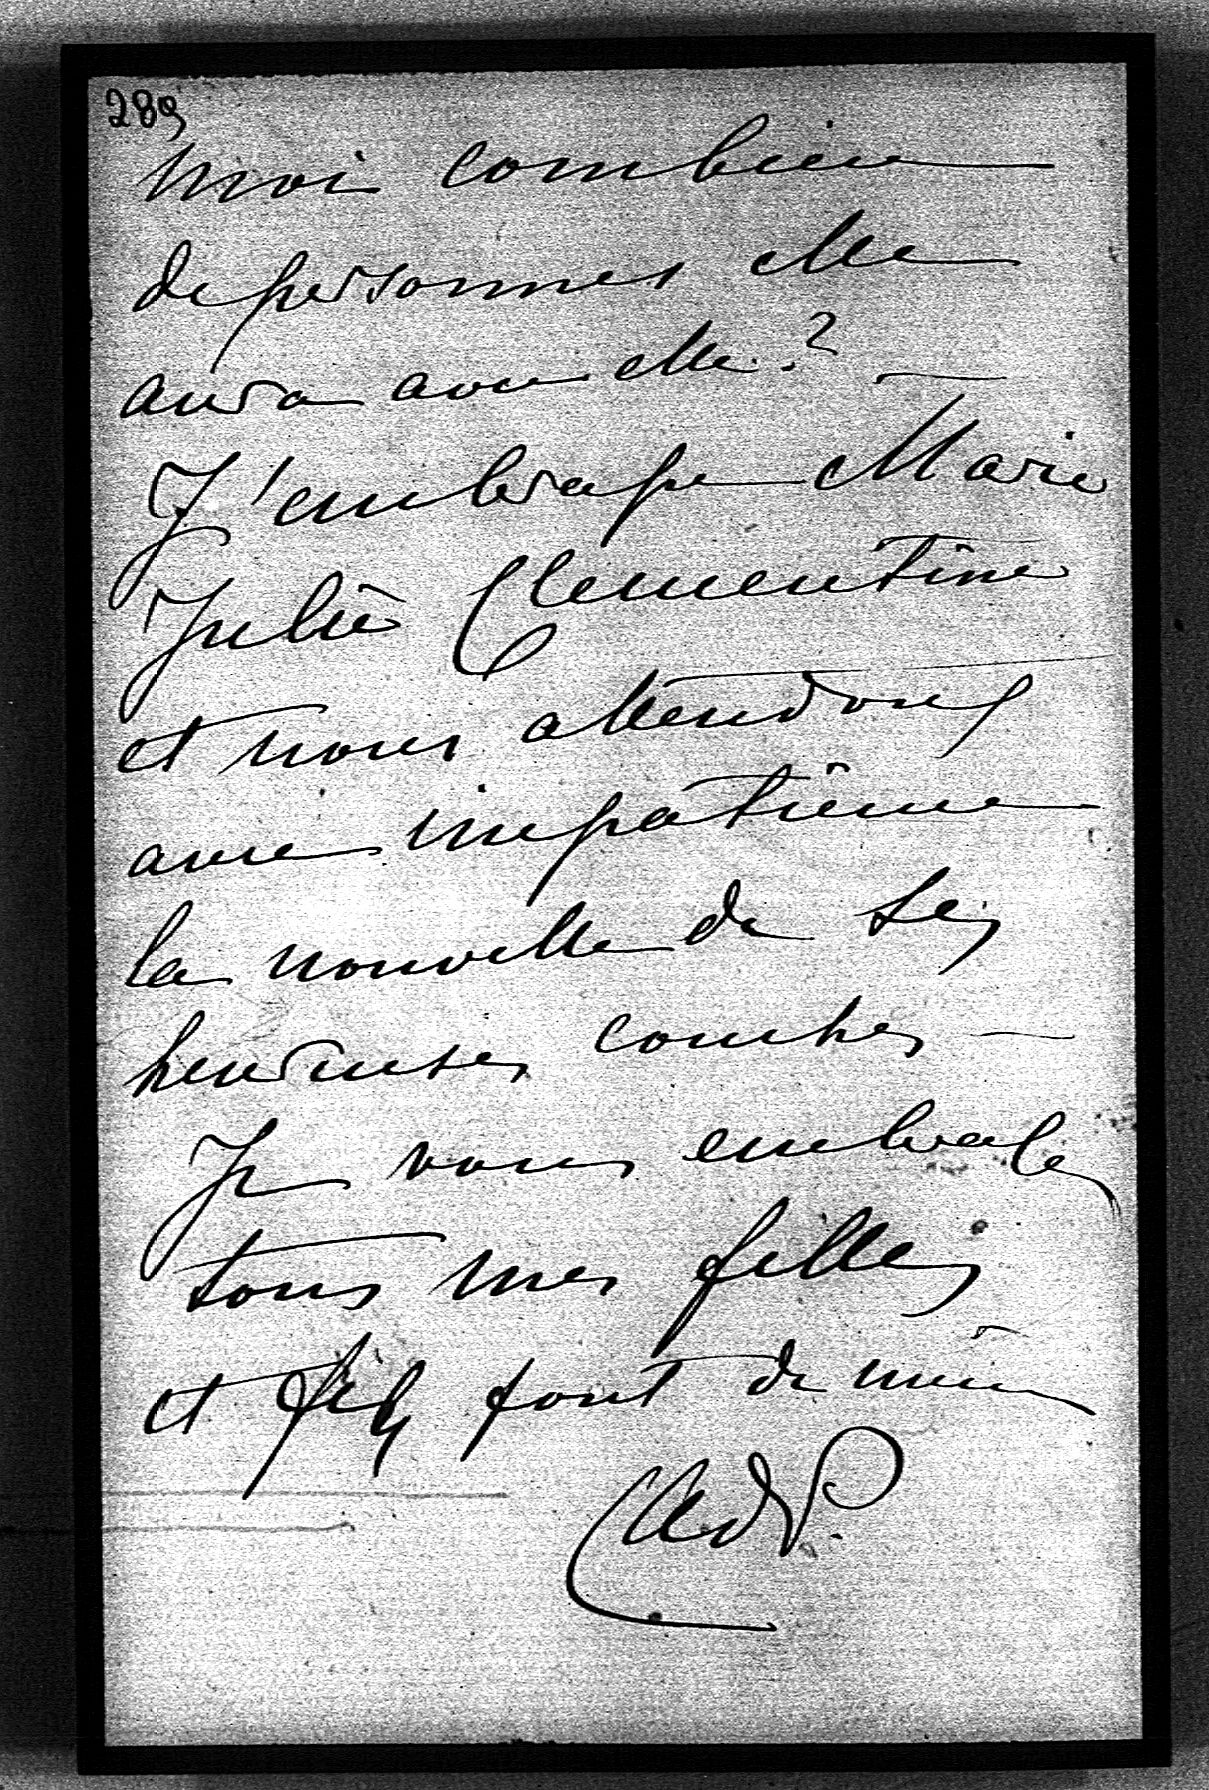 289
moi combien
de personnes elle
aura avec elle. ?
J'embrasse Marie
Julie Clementine
et nous attendons
avec impatience
la nouvelle de ses
heureuses couches —
Je vous embrasse
tous mes filles
et fils font de même
AdP.